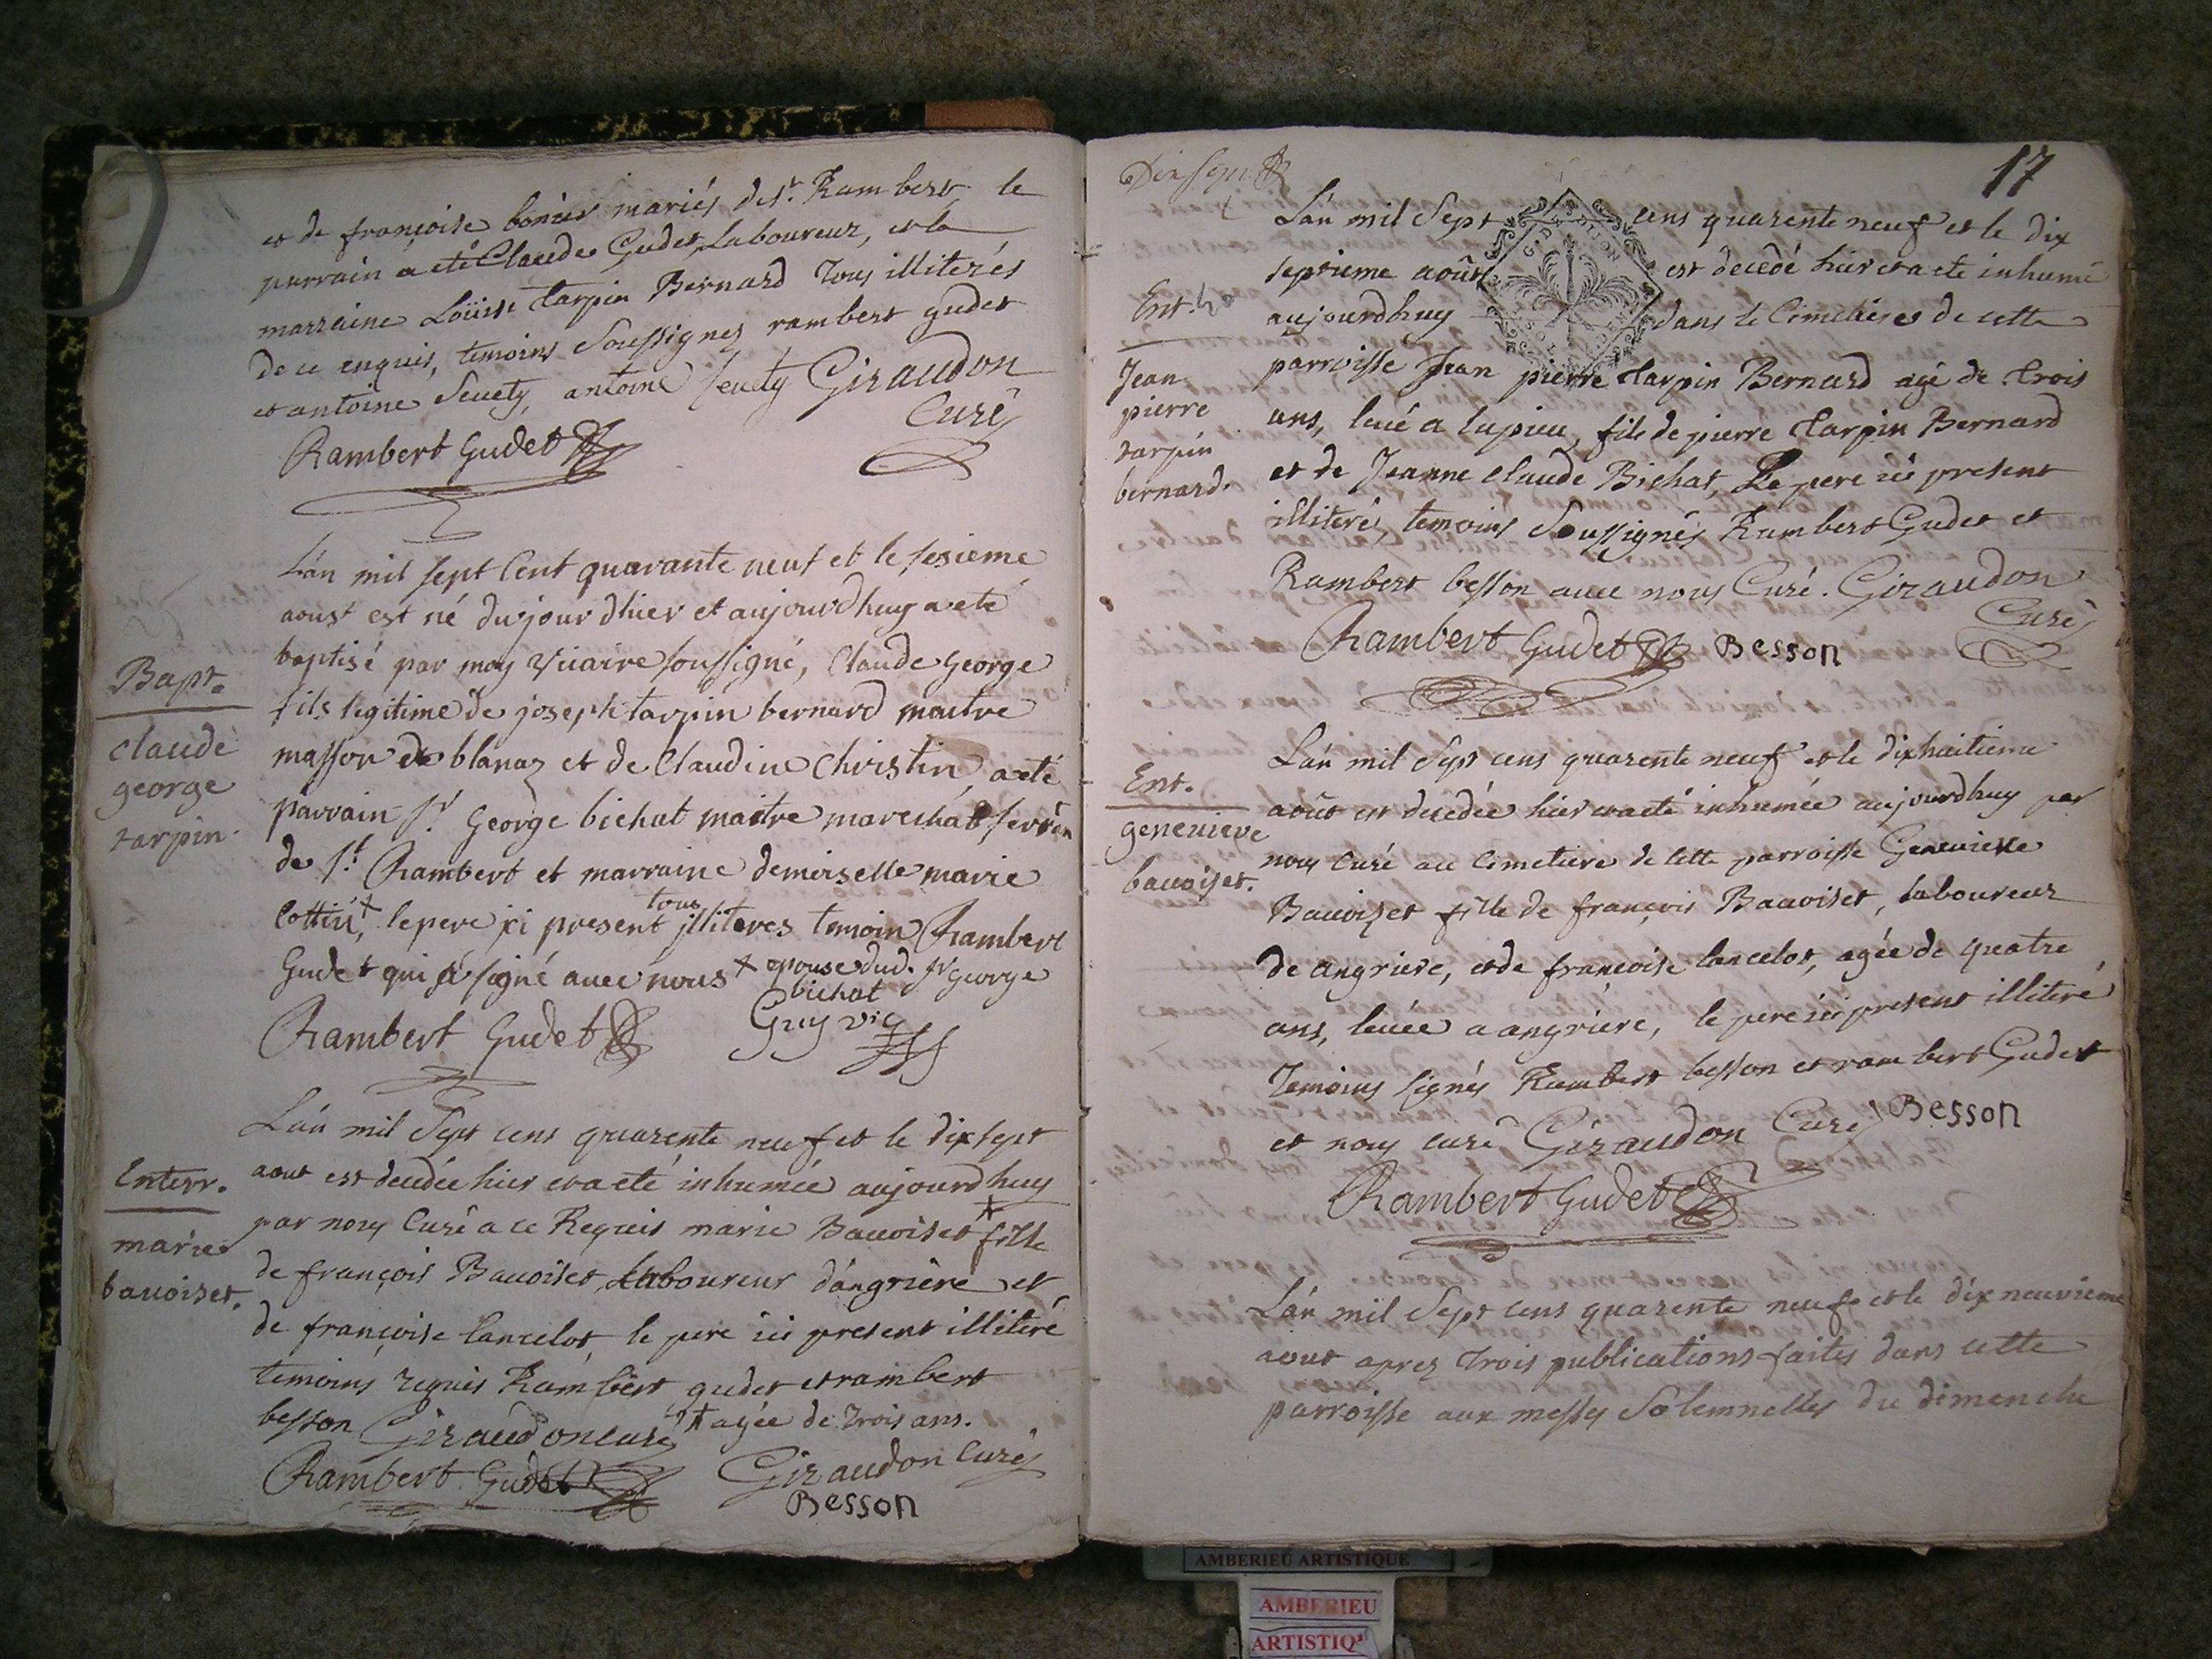 et de françoise bonier mariés de st. Rambert le
parrain a eté Claude Gudet Laboureur, et la
marraine Loüise tarpin Bernard Tous illiterés
de ce enquis, temoins Soussignes rambert gudet
et antoine Seuety, antoine seuety Giraudon
Curé
Rambert Gudet
L'án mil sept Cent quarante neuf et le sesieme
aoust est né du jour d'hier et aujourdhuy a eté
Bapt.
baptisé par moy Vicaire soussigné, Claude George
fils legitime de joseph tarpin bernard maitre
claude
george
tarpin.
masson de blanaz et de Claudine Christin a eté
parrain sr. George bichat maitre marechal serrén
de st. Rambert et marraine demoiselle marie
Cottin x, le pere ici present tous illiteres temoin Rambert
Gudet qui a signé avec nous x epouse dud. sr George
bichat
Rambert Gudet
Guy vic
L'án mil Sept cens quarente neuf et le dix sept
Enterr.
aout est decedée hier et a eté inhumée aujourdhuy
marie
bauoiset.
par nous Curé a ce Requis marie Bauoiset * fille
de françois Bauoiset, laboureur d'angriere et
de françoise Lancelot, le pere ici present illiteré
temoins requis Rambert gudet et rambert
besson Giraudon curé * agée de trois ans.
Rambert Gudet Giraudon Curé
Besson
17
Dix sept
L'án mil Sept cens quarente neuf et le dix
septieme août est decedé hier et a eté inhumé
Ent.
aujourdhuy dans le Cimetiere de cette
Jean
pierre
tarpin
bernard.
parroisse Jean pierre tarpin Bernard agé de trois
ans, leué a lupieu, fils de pierre tarpin Bernard
et de Jeanne Claude Bichat, Le pere ici present
illiteré, temoins Soussignés Rambert Gudet et
Rambert besson auec nous Curé. Giraudon
Curé
Rambert Gudet Besson
L'án mil Sept cens quarente neuf et le dixhuitieme
Ent.
août est decedée hier et a eté inhumée aujourdhuy par
geneuieve
bauoiset.
nous Curé au Cimetiere de cette parroisse Geneuieve
Bauoiset fille de françois Bauoiset, laboureur
de angriere, et de françoise lancelot, agée de quatre
ans, leuée a angriere, le pere ici present illiteré
Temoins signés Rambert besson et rambert Gudet
et nous curé Giraudon Curé Besson
Rambert Gudet
L'án mil Sept cens quarente neuf et le dix neuvieme
aout apres trois publications faites dans cette
parroisse aux messes Solemnelles du dimenche
AMBERIEU ARTISTIQUE
AMBERIEU
ARTISTIQ'